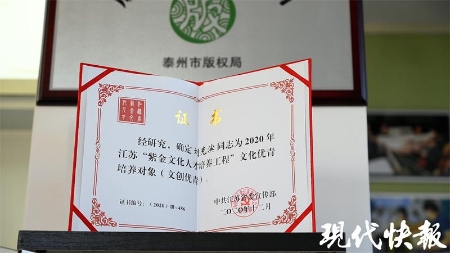 泰州市版权局
证书
经研究，确定刘光宋同志为2020年
江苏“紫金文化人才培养工程”文化优青
培养对象（文创优青）
证书编号：（2020）Ⅲ-486
中共江苏省委宣传部
二〇二〇年十二月
现代快报